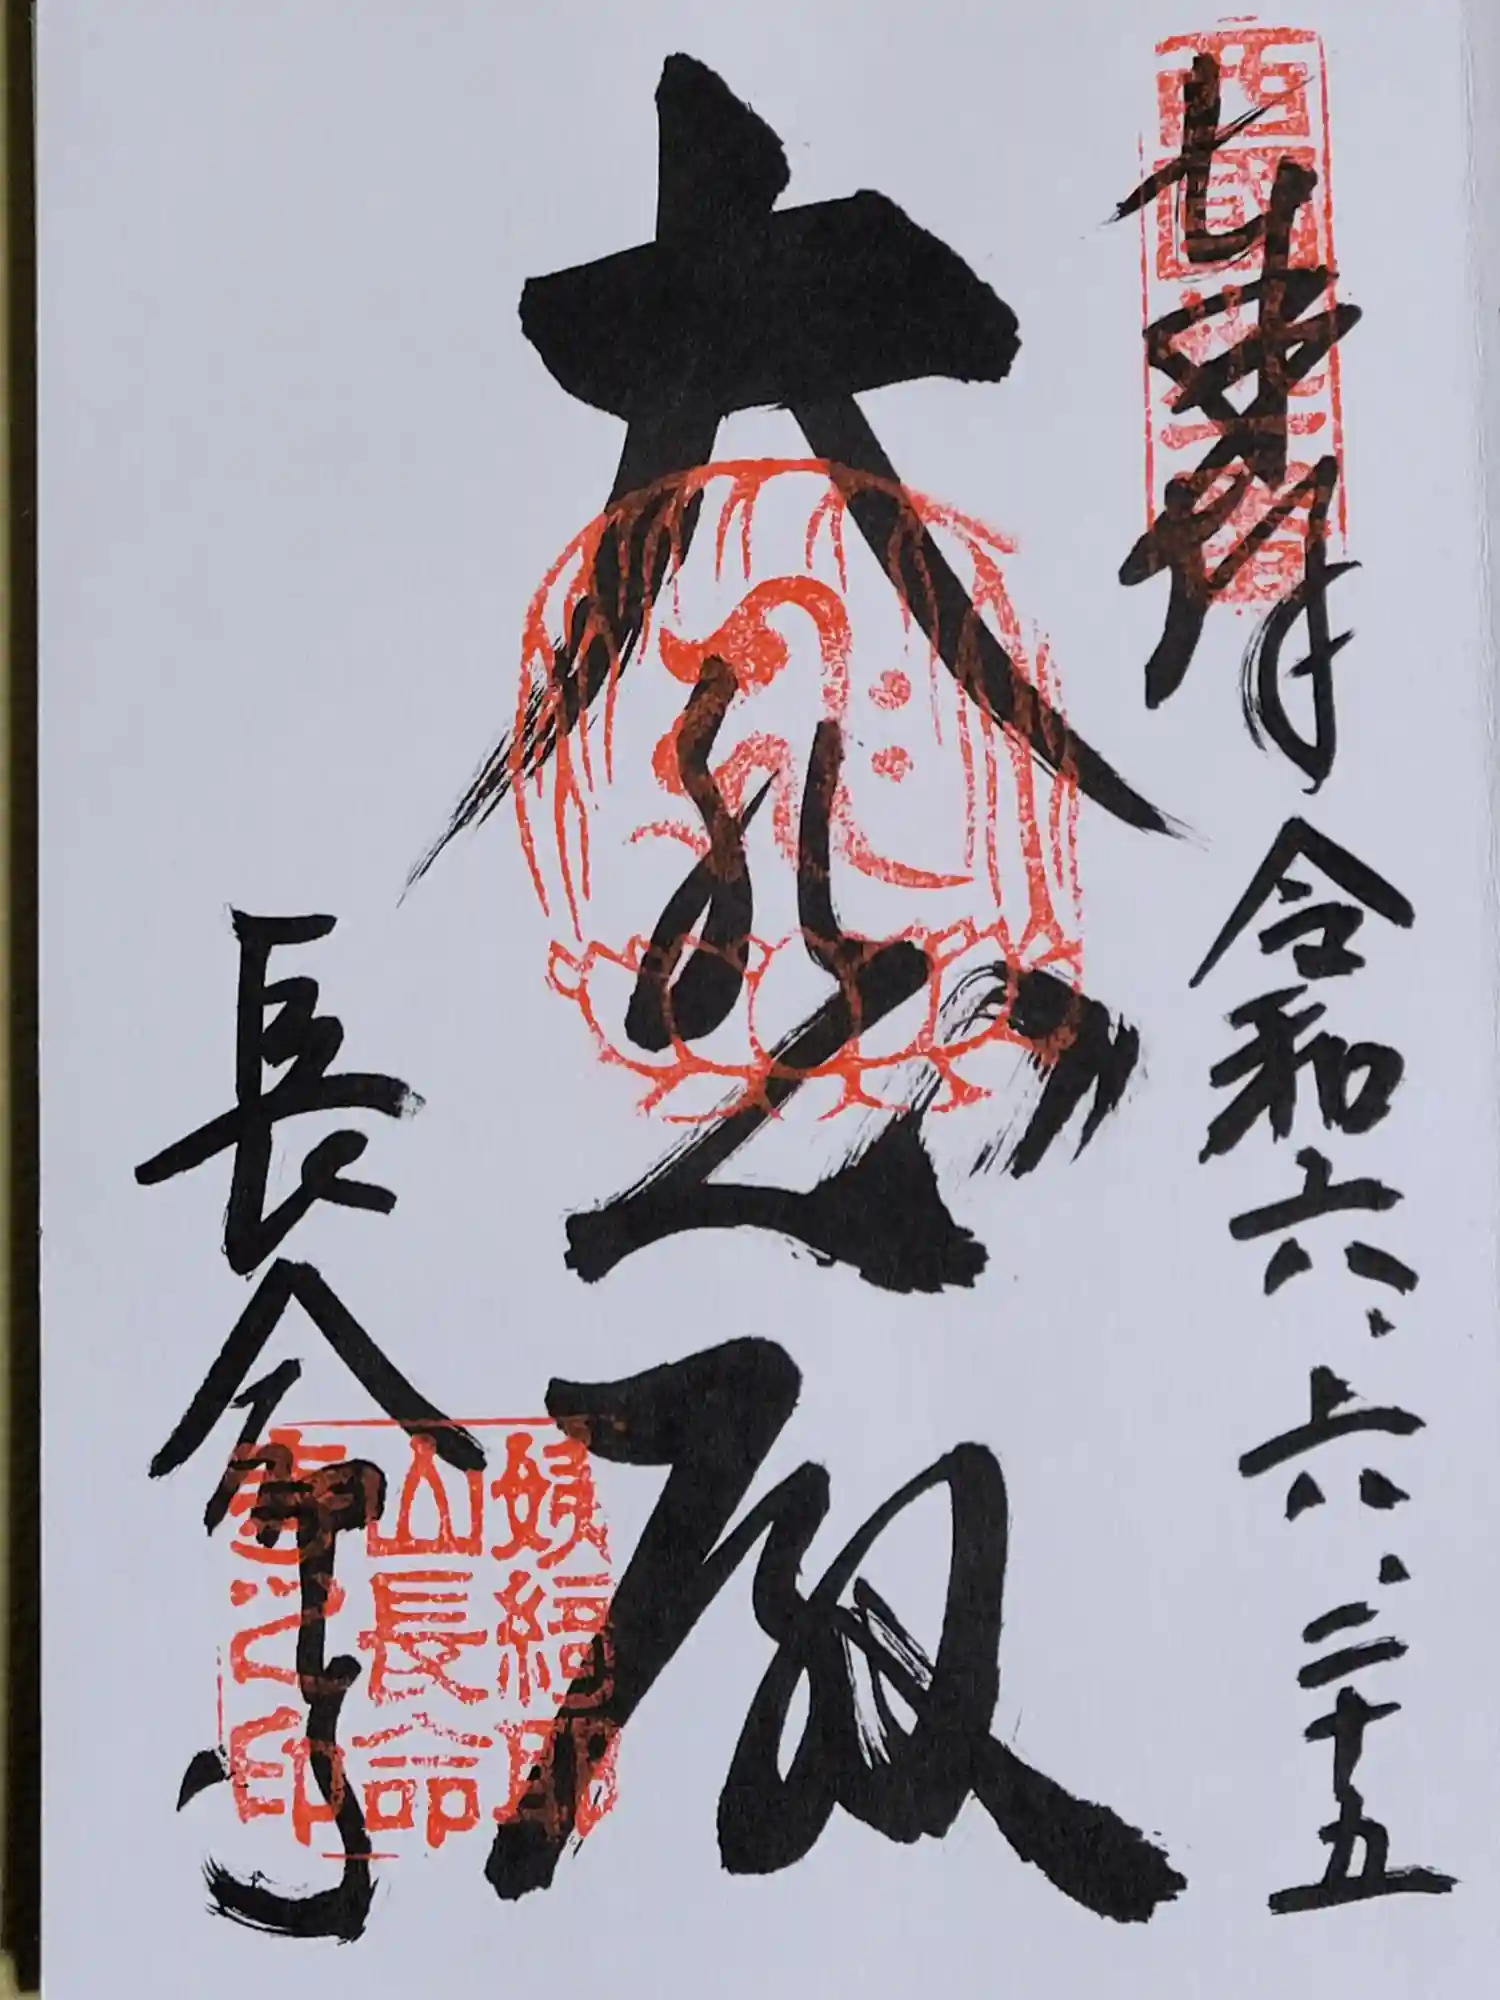 奉拝
令和六.六.二十五
西国卅一番
大悲殿
長命寺
姨綺耶
山長命
寺之印